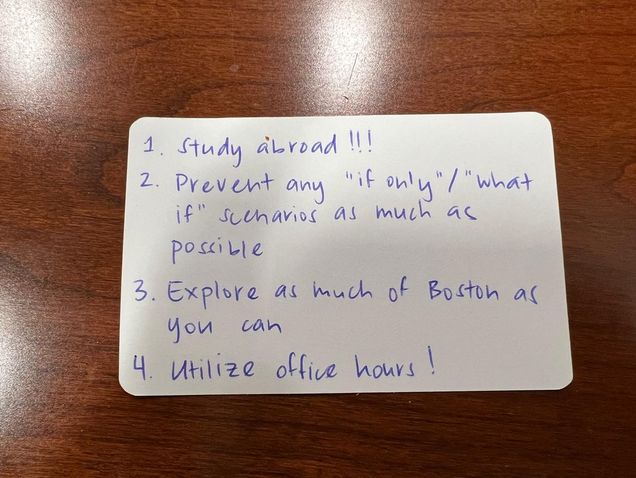 1. Study abroad!!!
2. Prevent any "if only"/"what
if" scenarios as much as
possible
3. Explore as much of Boston as
you can
4. Utilize office hours!